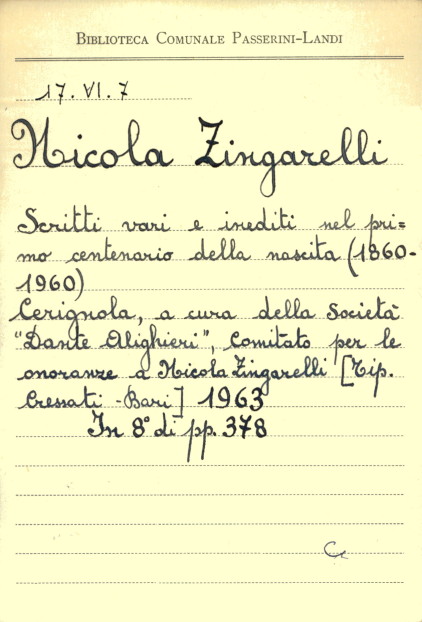 BIBLIOTECA COMUNALE PASSERINI-LANDI
17. VI. 7
Nicola Zingarelli
Scritti vari e inediti nel pri=
mo centenario della nascita (1860-
1960)
Cerignola, a cura della Società
"Dante Alighieri", Comitato per le
onoranze a Nicola Zingarelli [Tip.
Cressati - Bari] 1963
In 8° di pp. 378